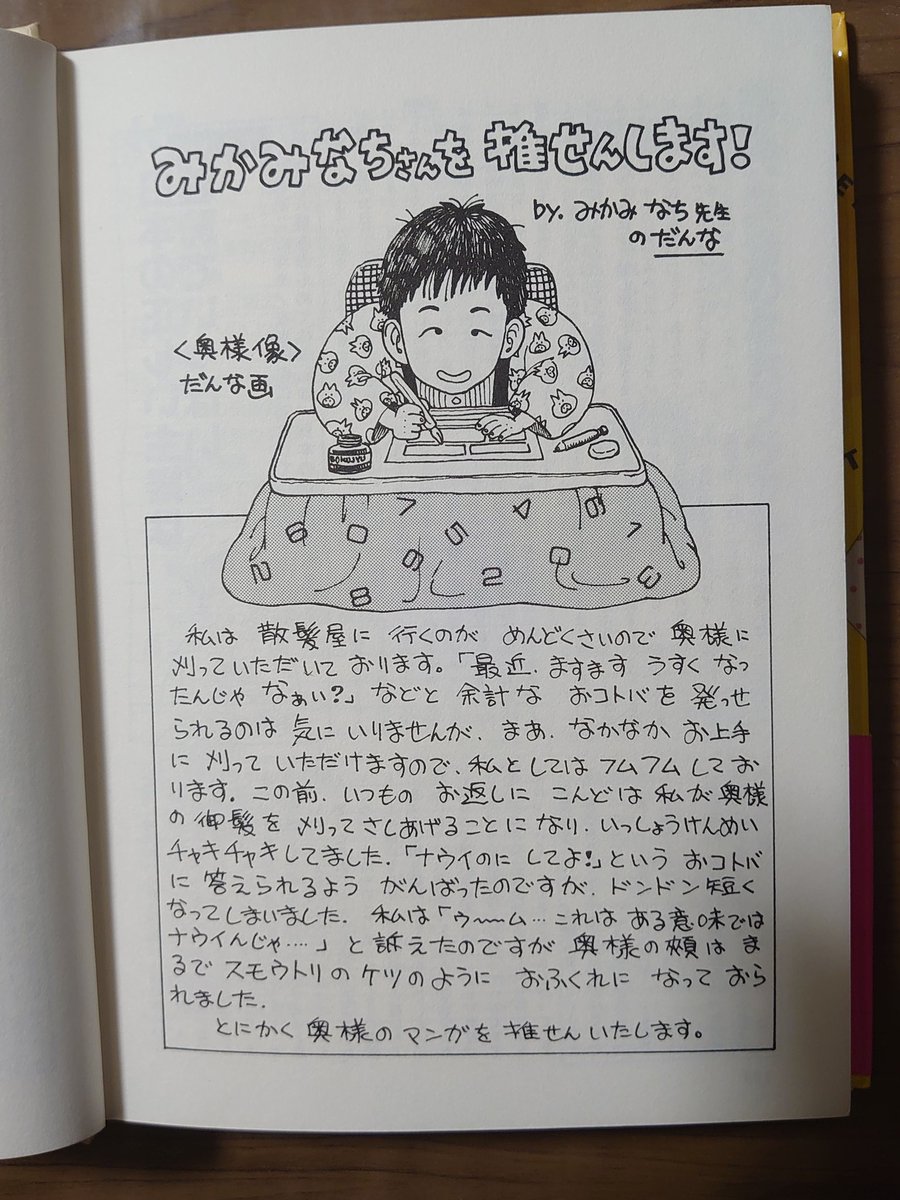 みかみなちさんを推せんします!
by. みかみなち先生
のだんな
〈奥様像〉
だんな画
私は散髪屋に行くのがめんどくさいので奥様に
刈っていただいております。「最近、ますますうすくなっ
たんじゃなぁい?」などと余計なおコトバを発っせ
られるのは気にいりませんが、まあ、なかなかお上手
に刈っていただけますので、私としてはフムフムしてお
ります。この前、いつものお返しにこんどは私が奥様
の御髪を刈ってさしあげることになり、いっしょうけんめい
チャキチャキしてました。「ナウイのにしてよ!」というおコトバ
に答えられるようがんばったのですが、ドンドン短く
なってしまいました。私は「ウ〜〜ム…これはある意味では
ナウイんじゃ‥‥」と訴えたのですが奥様の頬はま
るでスモウトリのケツのようにおふくれになっておら
れました。
とにかく奥様のマンガを推せんいたします。